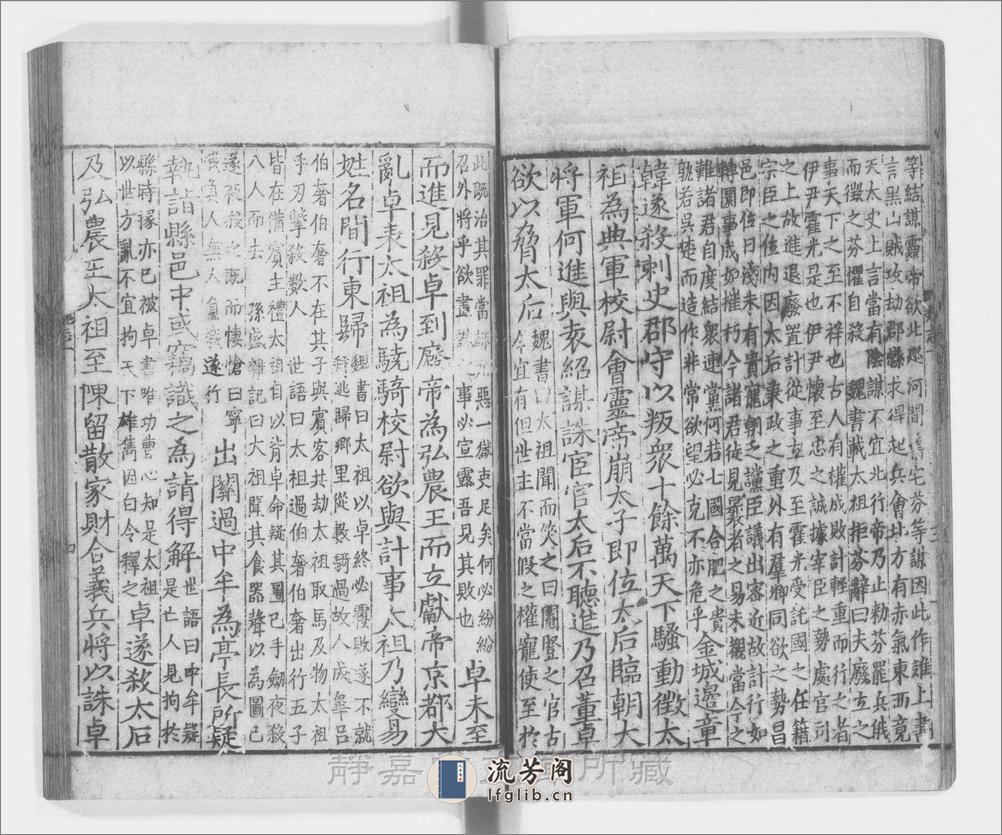 等結謀靈帝欲北巡河間舊宅芬等謀因此作難上書
言黑山賊攻劫郡縣求得起兵會北方有赤氣東西竟
天太史上言當有陰謀不宜北行帝乃止勑芬罷兵俄
而徵之芬懼自殺　魏書載太祖拒芬辭曰夫廢立之
事天下之至不祥也古人有權成敗計輕重而行之者
伊尹霍光是也伊尹懷至忠之誠據宰臣之勢處官司
之上故進退廢置計從事立及至霍光受託國之任籍
宗臣之位內因太后秉政之重外有羣卿同欲之勢昌
邑即位日淺未有貴寵朝乏讜臣議出密近故計行如
轉圜事成如摧朽今諸君徒見曩者之易未覩當今之
難諸君自度結衆連黨何若七國合肥之貴
孰若吳楚而造作非常欲望必克不亦危乎
金城邊章
韓遂殺刺史郡守以叛衆十餘萬天下騷動徵太
祖為典軍校尉會靈帝崩太子即位太后臨朝大
將軍何進與袁紹謀誅宦官太后不聽進乃召董卓
欲以脅太后
魏書曰太祖聞而笑之曰閹豎之官古
今宜有但世主不當假之權寵使至於
此既治其罪當誅元惡一獄吏足矣何必紛紛
召外將乎欲盡誅之事必宣露吾見其敗也
卓未至
而進見殺卓到廢帝為弘農王而立獻帝京都大
亂卓表太祖為驍騎校尉欲與計事太祖乃變易
姓名間行東歸
魏書曰太祖以卓終必覆敗遂不就
拜逃歸鄉里從數騎過故人成皋呂
伯奢伯奢不在其子與賓客共劫太祖取馬及物太祖
手刃擊殺數人　世語曰太祖過伯奢伯奢出行五子
皆在備賓主禮太祖自以背卓命疑其圖己手劒夜殺
八人而去　孫盛雜記曰太祖聞其食器聲以為圖己
遂夜殺之既而悽愴曰寧
我負人無人負我遂行
出關過中牟為亭長所疑
執詣縣邑中或竊識之為請得解
世語曰中牟疑
是亡人見拘於
縣時掾亦已被卓書唯功曹心知是太祖
以世方亂不宜拘天下雄雋因白令釋之
卓遂殺太后
及弘農王太祖至陳留散家財合義兵將以誅卓
靜嘉
所藏
流芳阁
lfglib.cn